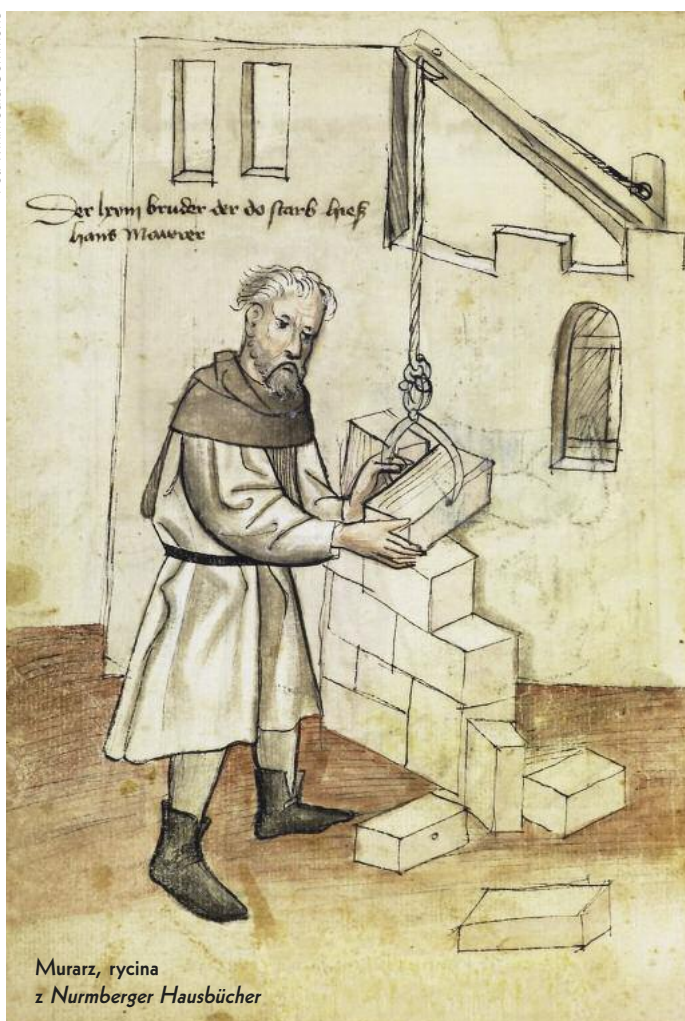 Der bruder der do starb hieß
hans Mawrer
Murarz, rycina
z Nurmberger Hausbücher